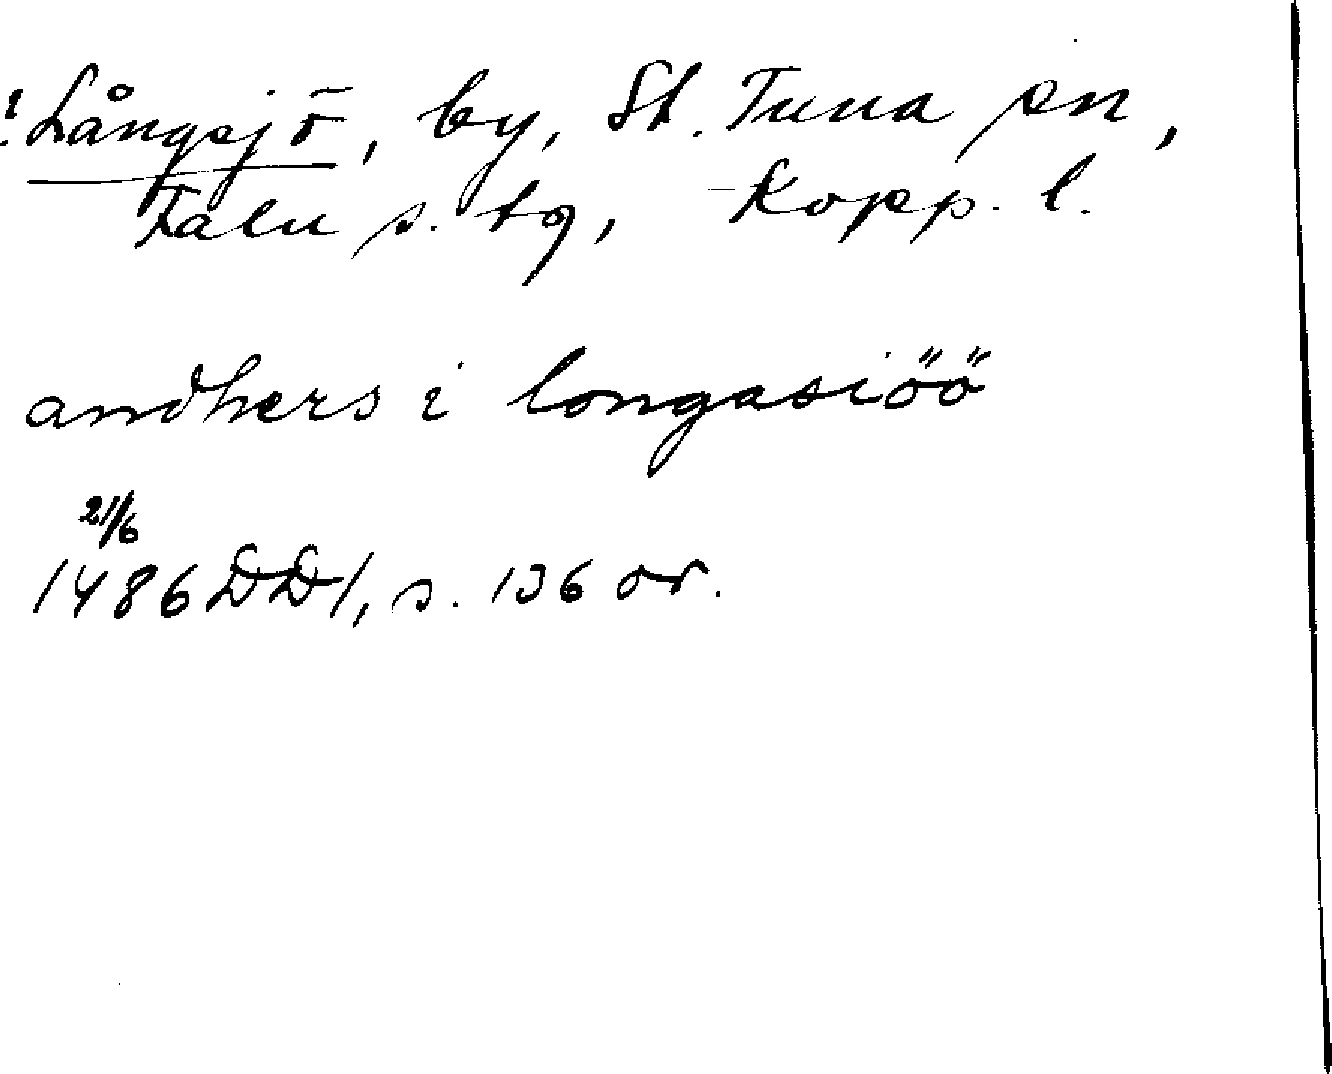 ! Långsjö, by, St. Tuna sn,
Falu s. tg, Kopp. l.
andhers i longasiöö
21/6
1486 DD 1, s. 136 or.